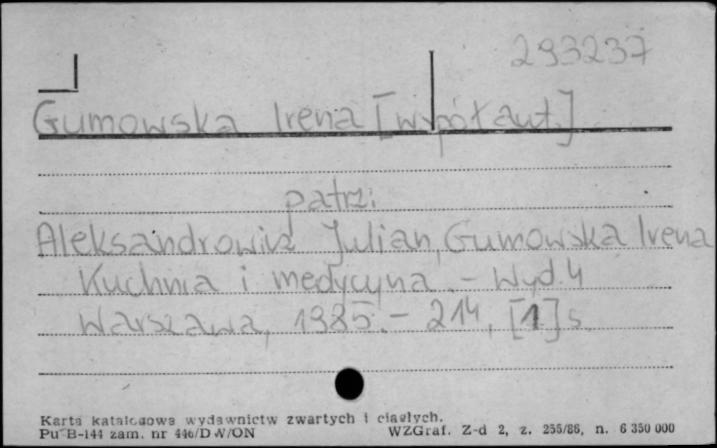 293237
Gumowska Irena [współaut.]
patrz:
Aleksandrowicz Julian, Gumowska Irena
Kuchnia i medycyna. - Wyd. 4
Warszawa, 1985. - 214, [1] s.
Karta katalogowa wydawnictw zwartych i ciągłych.
Pu-B-144 zam. nr 446/DW/ON
WZGraf. Z-d 2, z. 255/86, n. 6 350 000